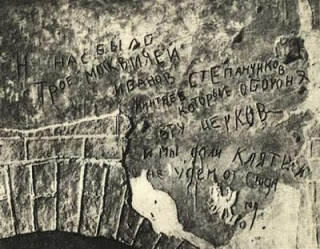 И НАС БЫЛО
ТРОЕ МОСКВИЧЕЙ
ИВАНОВ СТЕПАНЧИКОВ
ЖУНТЯЕВ КОТОРЫЕ ОБОРОНЯ
ЭТУ ЦЕРКОВ
И МЫ ДАЛИ КЛЯТВУ
НЕ УЙДЕМ ОТСЮДА